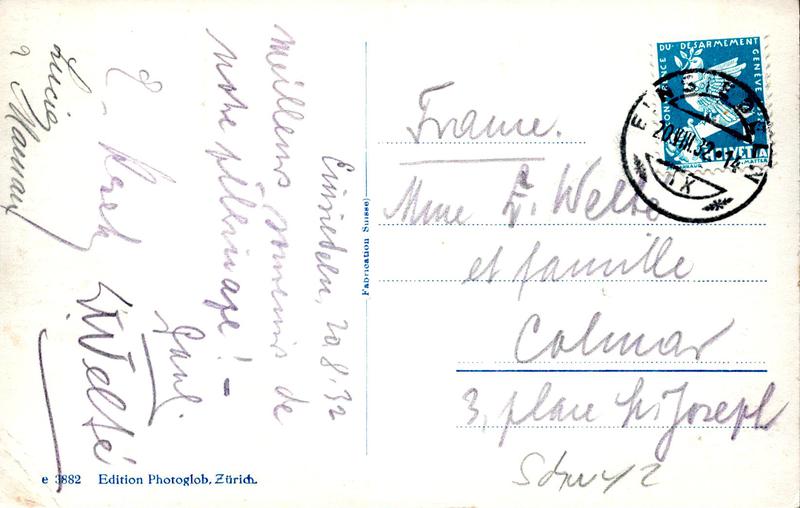 Einsiedeln, 20.8.32
Meilleurs souvenirs de
notre pèlerinage! -
Paul
E. Welté
Lucie
Maman
Fabrication Suisse
France.
Mme E. Welté
et famille
Colmar
3, place St. Joseph
Schwyz
CONFERENCE DU DESARMEMENT GENEVE
HELVETIA
EINSIEDELN
20.VIII.32.-14
e 3882 Edition Photoglob, Zürich.